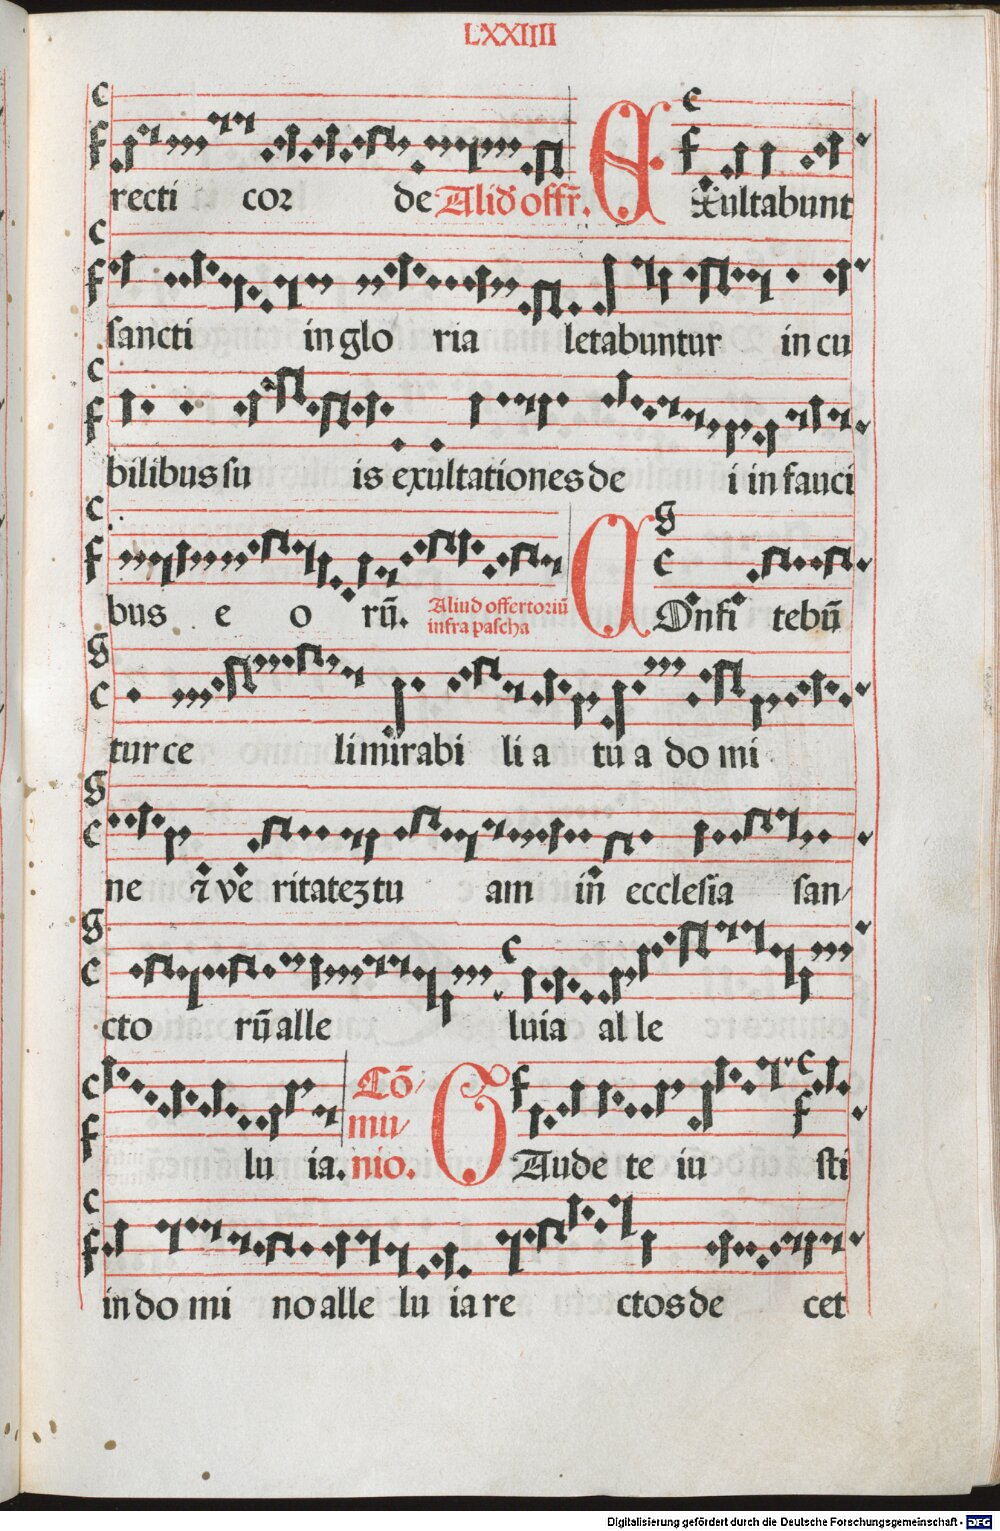 LXXIIII
recti cor de Aliđ offr̄. EXultabunt
sancti in glo ria letabuntur in cu
bilibus su is exultationes de i in fauci
bus e o rū. Aliud offertoriū infra pascha COnfi tebū
tur ce li mirabi li a tu a do mi
ne ⁊ ve ritatēꝫ tu am in ecclesia san/
cto rū alle luia al le
lu ia. Cō/mu/nio. GAude te iu sti
in do mi no alle lu ia re ctos de cet
Digitalisierung gefördert durch die Deutsche Forschungsgemeinschaft - DFG